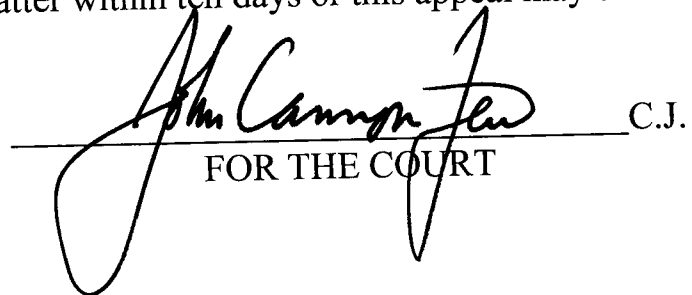 atter within ten days or this appeal may
John Cannon Few C.J.
FOR THE COURT